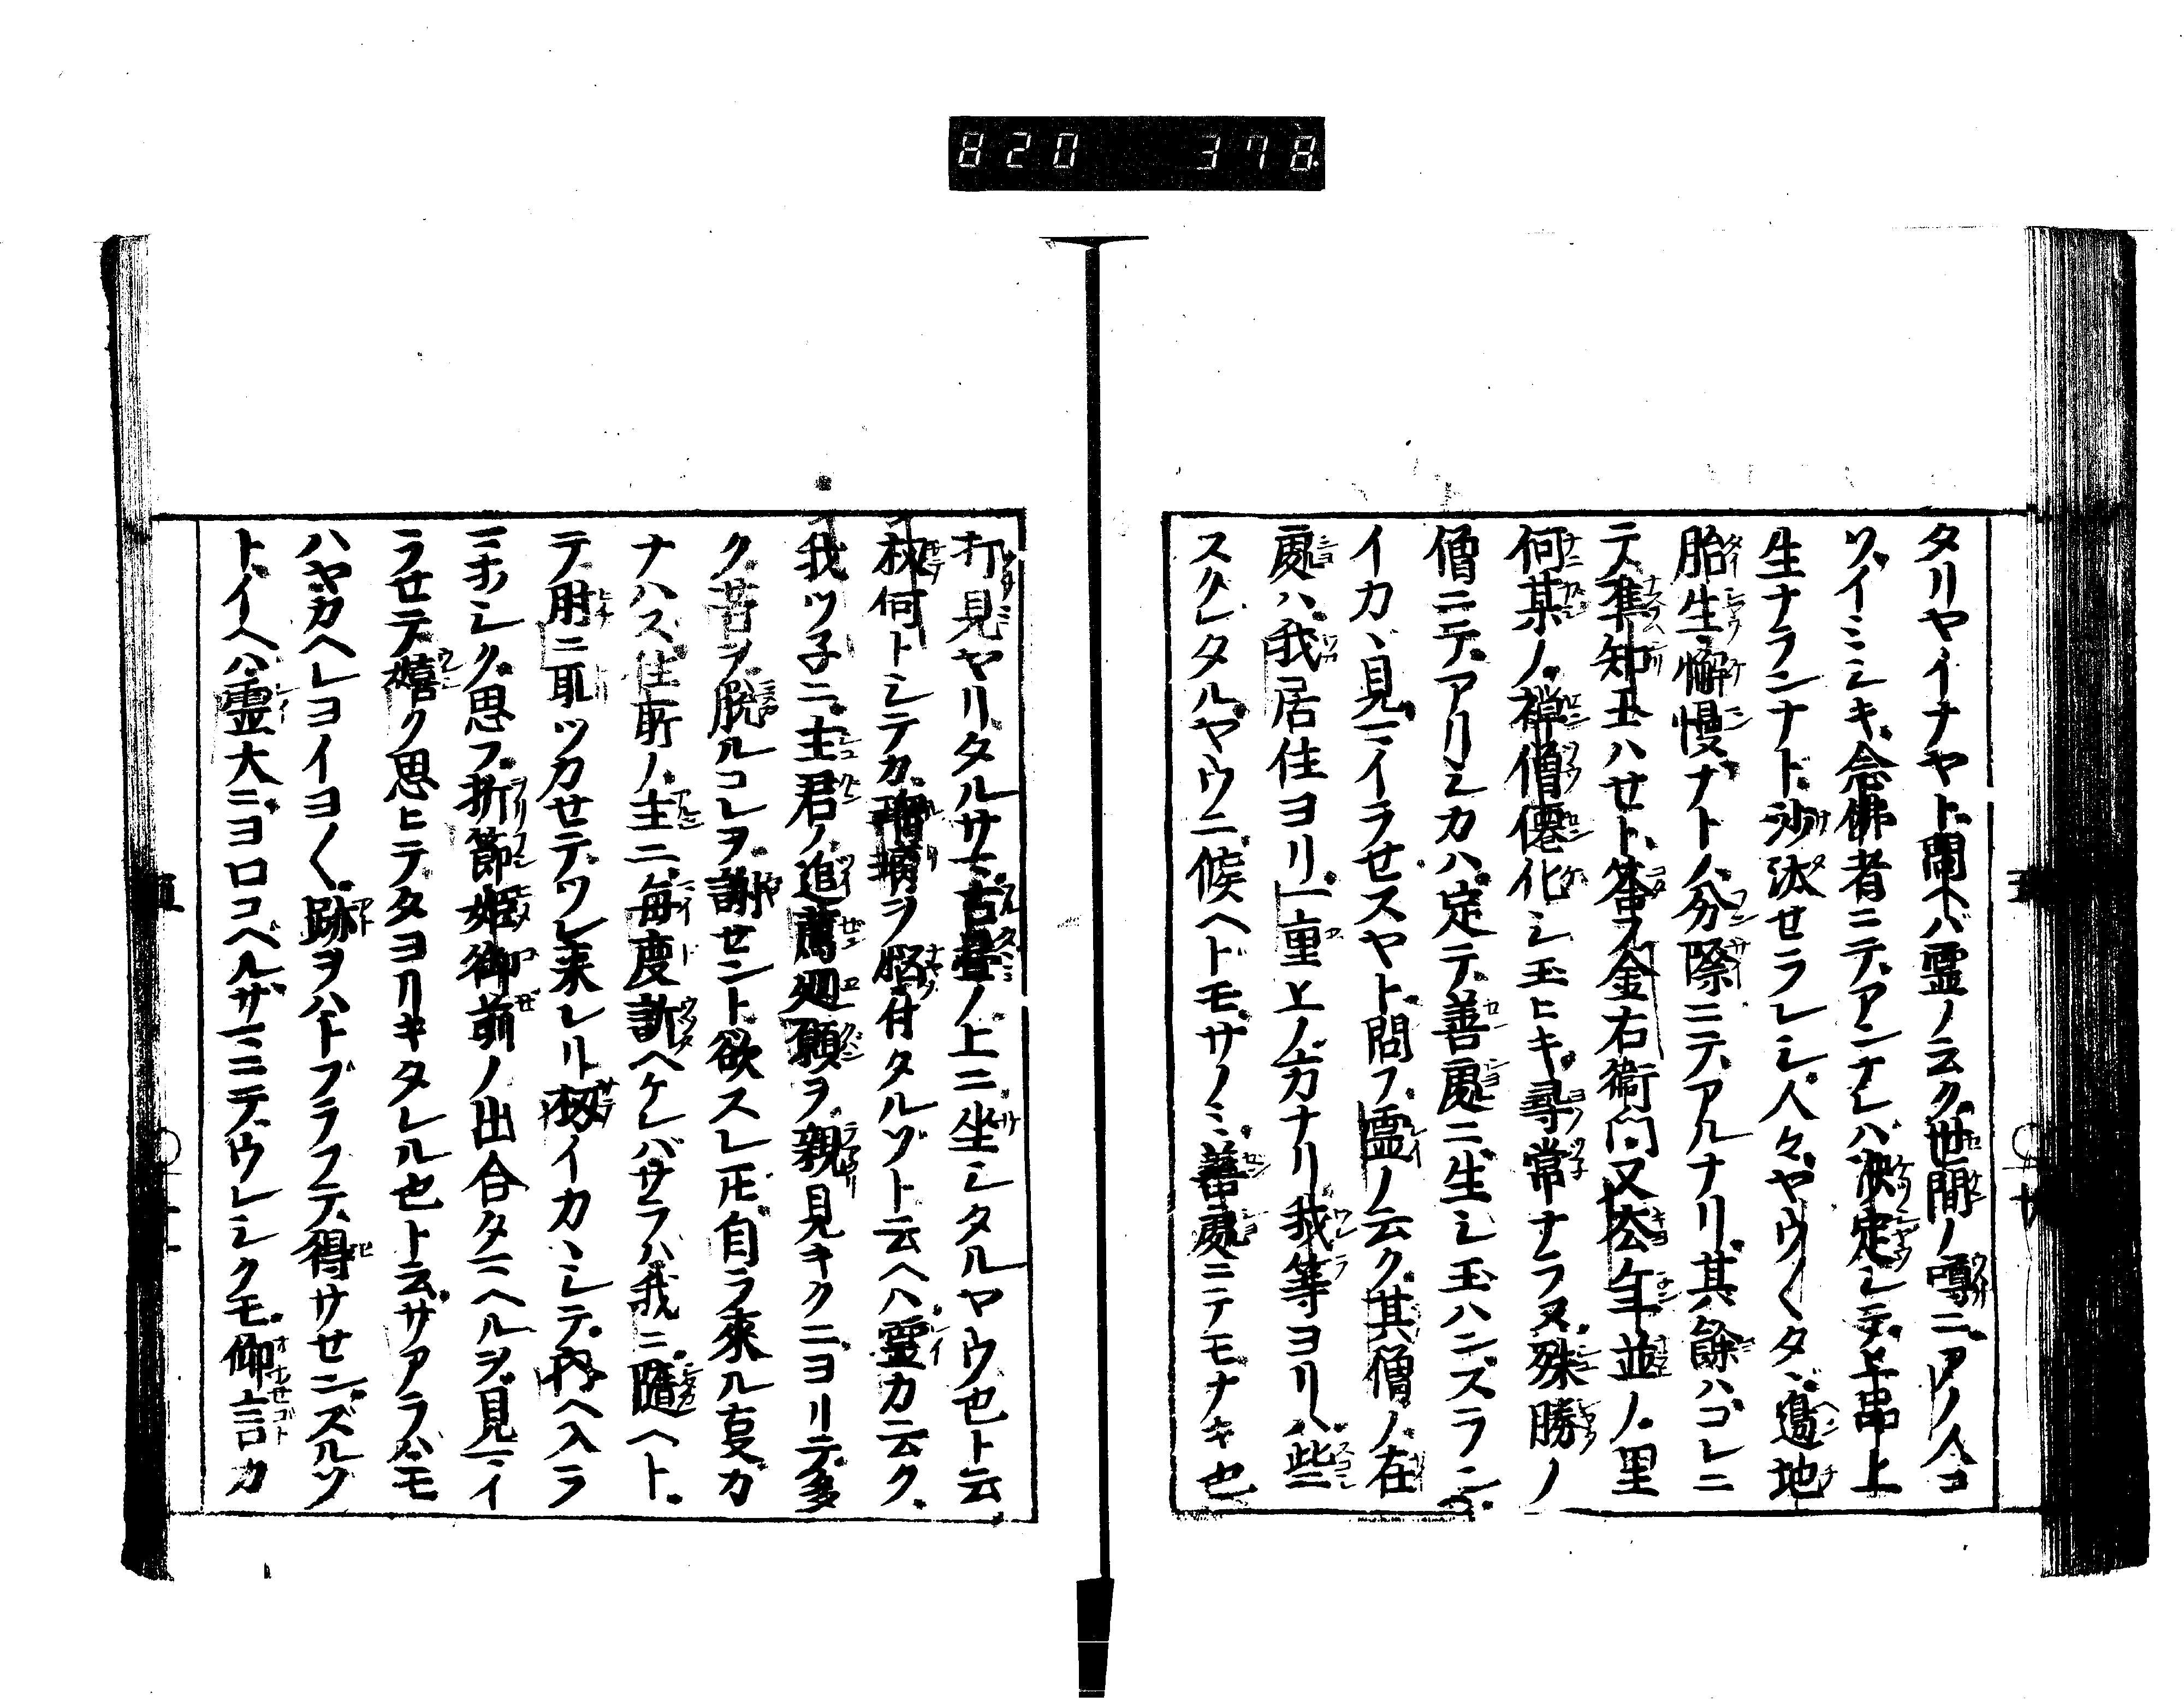 820 378
タリヤイナヤト、聞ヘバ霊ノ云ク、世間ノ噂ニ、アノ人コ
ソ、イミシキ念佛者ニテ、アンナレハ、決定シテ、上品上
生ナランナド、沙汰セラレシ人々、ヤウ〱タヾ邊地
胎生、懈慢ナトノ分際ニテ、アルナリ、其餘ハ、コレニ
テ、準知玉ハセト、答フ金右衛門又去年並ノ里
何某ノ、禅僧僊化シ玉ヒキ、尋常ナラヌ、殊勝ノ
僧ニテ、アリシカハ、定テ善處ニ生シ玉ハンズラン、
イカヽ見マイラセスヤト、問フ霊ノ云ク、其僧ノ在
處ハ、我居住ヨリ一重上ノ方ナリ我等ヨリハ些ニ
スクレタルヤウニ、候ヘドモ、サノミ善處ニテモナキ也
打見ヤリタルサマ、古畳ノ上ニ坐シタルヤウ也ト云
扨何トシテカ、瘧病ヲ悩付タルゾト云ヘハ霊カ云ク、
我ツ子ニ、主君ノ追薦廻願ヲ、親見キクニヨリテ、多
ク苦ヲ脱ルコレヲ、謝セント欲スレ𪜈自ラ來ル叓カ
ナハス住所ノ、主ニ毎度訴ヘケレバサラハ我ニ隨ヘト、
テ、肘ニ取ツカせテツレ来レリ扨イカヽシテ、内ヘ入ラ
マホシク、思フ、折節姫御前ノ出合タマヘルヲ、見マイ
ラせテ、嬉ク思ヒテタヨリキタレル也ト云、サアラハモ
ハヤカヘレヨイヨ〱跡ヲハトブラフテ、得サせンズルソ
ト、イヘハ霊大ニ、ヨロコベルサマニテ、ウレシクモ、仰言カ